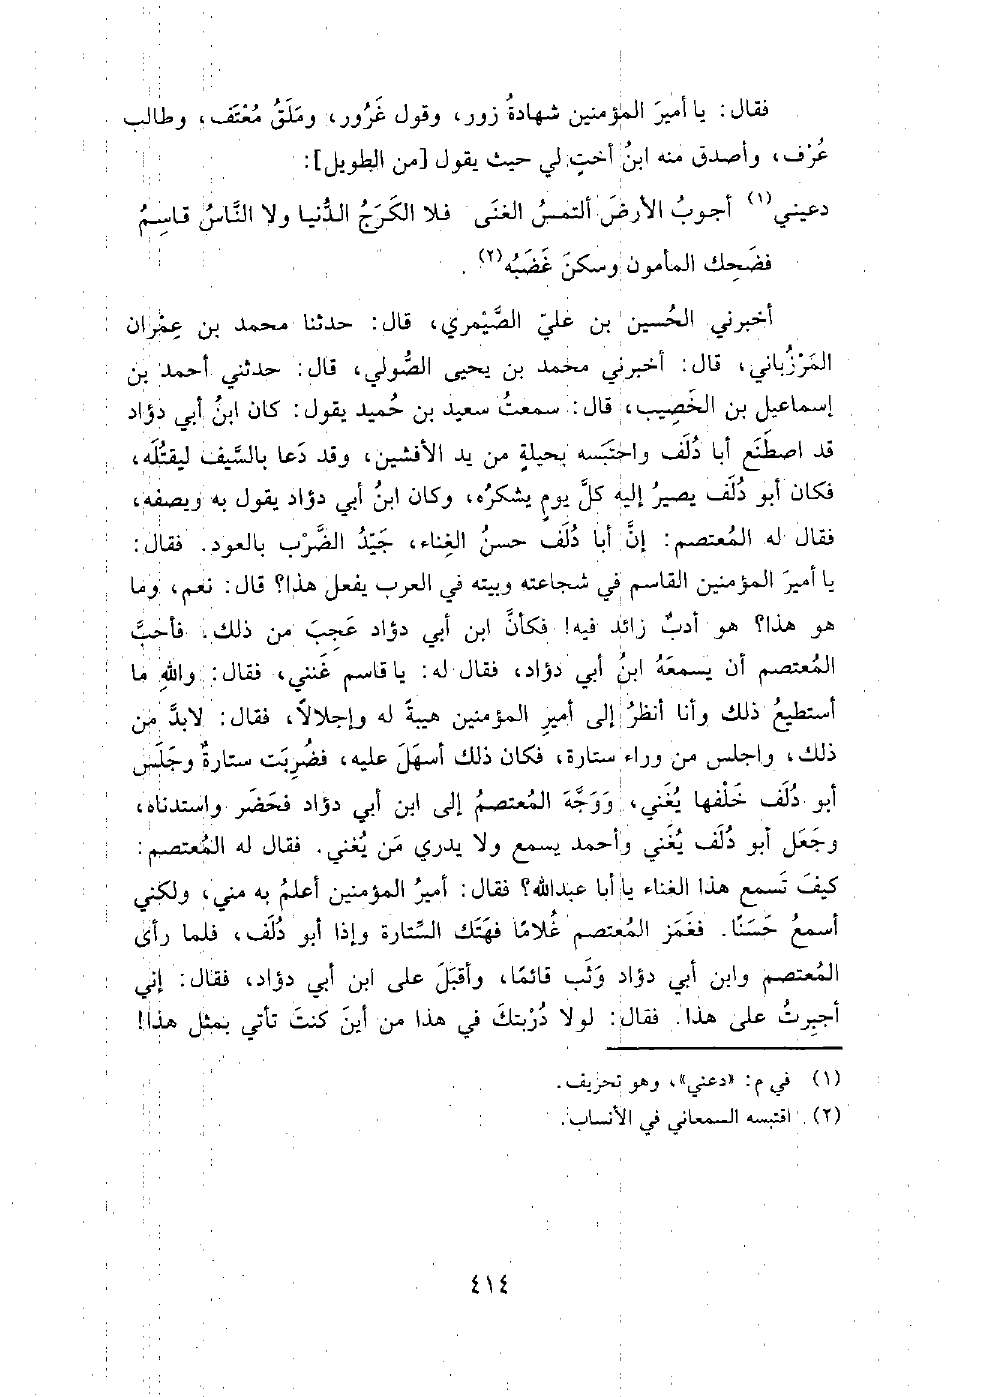 فقال: يا أميرَ المؤمنين شهادةُ زور، وقول غَرُور، ومَلَقُ مُعْتَف، وطالب
عُرْف، وأصدق منه ابنُ أختٍ لي حيث يقول [من الطويل]:
دعيني(١) أجوبُ الأرضَ ألتمسُ الغنَى فلا الكَرَجُ الدُّنيا ولا النَّاسُ قاسِمُ
فضَحِك المأمون وسكنَ غَضَبُه(٢).
أخبرني الحُسين بن عليّ الصَّيْمري، قال: حدثنا محمد بن عِمْران
المَرْزُباني، قال: أخبرني محمد بن يحيى الصُّولي، قال: حدثني أحمد بن
إسماعيل بن الخَصِيب، قال: سمعتُ سعيد بن حُميد يقول: كان ابنُ أبي دؤاد
قد اصطَنَع أبا دُلَف واحتَبَسه بحيلةٍ من يد الأفشين، وقد دَعا بالسَّيف ليقتُلَه،
فكان أبو دُلَف يصيرُ إليه كلَّ يومٍ يشكرُه، وكان ابنُ أبي دؤاد يقول به ويصفه،
فقال له المُعتصم: إنَّ أبا دُلَف حسنُ الغِناء، جَيّدُ الضَّرْب بالعود. فقال:
يا أميرَ المؤمنين القاسم في شجاعته وبيته في العرب يفعل هذا؟ قال: نعم، وما
هو هذا؟ هو أدبٌ زائد فيه! فكأنَّ ابن أبي دؤاد عَجِبَ من ذلك. فأحبَّ
المُعتصم أن يسمعَهُ ابنُ أبي دؤاد، فقال له: يا قاسم غَنني، فقال: واللهِ ما
أستطيعُ ذلك وأنا أنظرُ إلى أميرِ المؤمنين هيبةً له وإجلالاً، فقال: لابدَّ من
ذلك، واجلس من وراء ستارة، فكان ذلك أسهَلَ عليه، فضُرِبَت ستارةٌ وجَلَس
أبو دُلَف خَلْفها يُغَني، وَوَجَّهَ المُعتصمُ إلى ابن أبي دؤاد فحَضَر واستدناه،
وجَعَل أبو دُلَف يُغَني وأحمد يسمع ولا يدري مَن يُغني. فقال له المُعتصم:
كيفَ تَسمع هذا الغناء يا أبا عبدالله؟ فقال: أميرُ المؤمنين أعلمُ به مني، ولكني
أسمعُ حَسَنًا. فغَمَز المُعتصم غُلامًا فهَتَك السِّتارة وإذا أبو دُلَف، فلما رأى
المُعتصم وابن أبي دؤاد وَثَب قائمًا، وأقبَلَ على ابن أبي دؤاد، فقال: إني
أجبِرتُ على هذا. فقال: لولا دُرْبتكَ في هذا من أينَ كنتَ تأتي بمثل هذا!
(١) في م: «دعني»، وهو تحريف.
(٢) اقتبسه السمعاني في الأنساب.
٤١٤